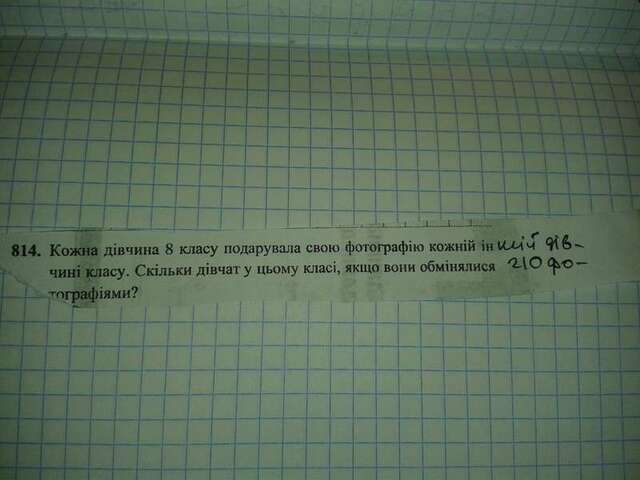 814. Кожна дівчина 8 класу подарувала свою фотографію кожній іншій дів-
чині класу. Скільки дівчат у цьому класі, якщо вони обмінялися 210 фо-
тографіями?